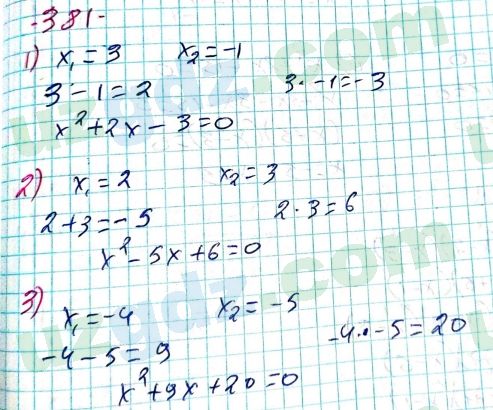 -381-
1) x₁ = 3 x₂ = -1
3 - 1 = 2 3 · -1 = -3
x² + 2x - 3 = 0
2) x₁ = 2 x₂ = 3
2 + 3 = - 5 2 · 3 = 6
x² - 5x + 6 = 0
3) x₁ = -4 x₂ = -5
-4 - 5 = 9 -4 · -5 = 20
x² + 9x + 20 = 0